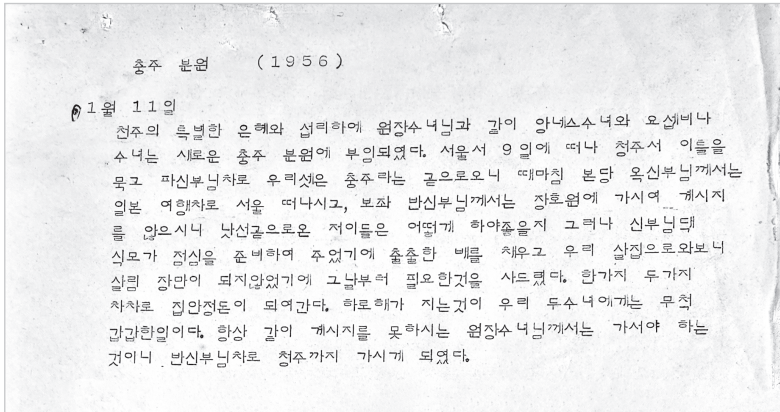 충주 분원 (1956)
1월 11일
천주의 특별한 은혜와 섭리하에 원장수녀님과 같이 앙네스수녀와 요셉비나
수녀는 새로운 충주 분원에 부임되였다. 서울서 9일에 떠나 청주서 이틀을
묵고 파신부님차로 우리셋은 충주라는 곧으로오니 때마침 본당 옥신부님께서는
일본 여행차로 서울 떠나시고, 보좌 반신부님께서는 장호원에 가시여 계시지
를 않으시니 낫선곧으로온 저이들은 어떻게 하야좋을지 그러나 신부님댁
식모가 점심을 준비하여 주었기에 출출한 배를 채우고 우리 살집으로와보니
살림 장만이 되지않었기에 그날부터 필요한것을 사드렸다. 한가지 두가지
차차로 집안정돈이 되여간다. 하로해가 지는것이 우리 두수녀에게는 무척
갑갑한일이다. 항상 같이 계시지를 못하시는 원장수녀님께서는 가서야 하는
것이니 반신부님차로 청주까지 가시게 되였다.